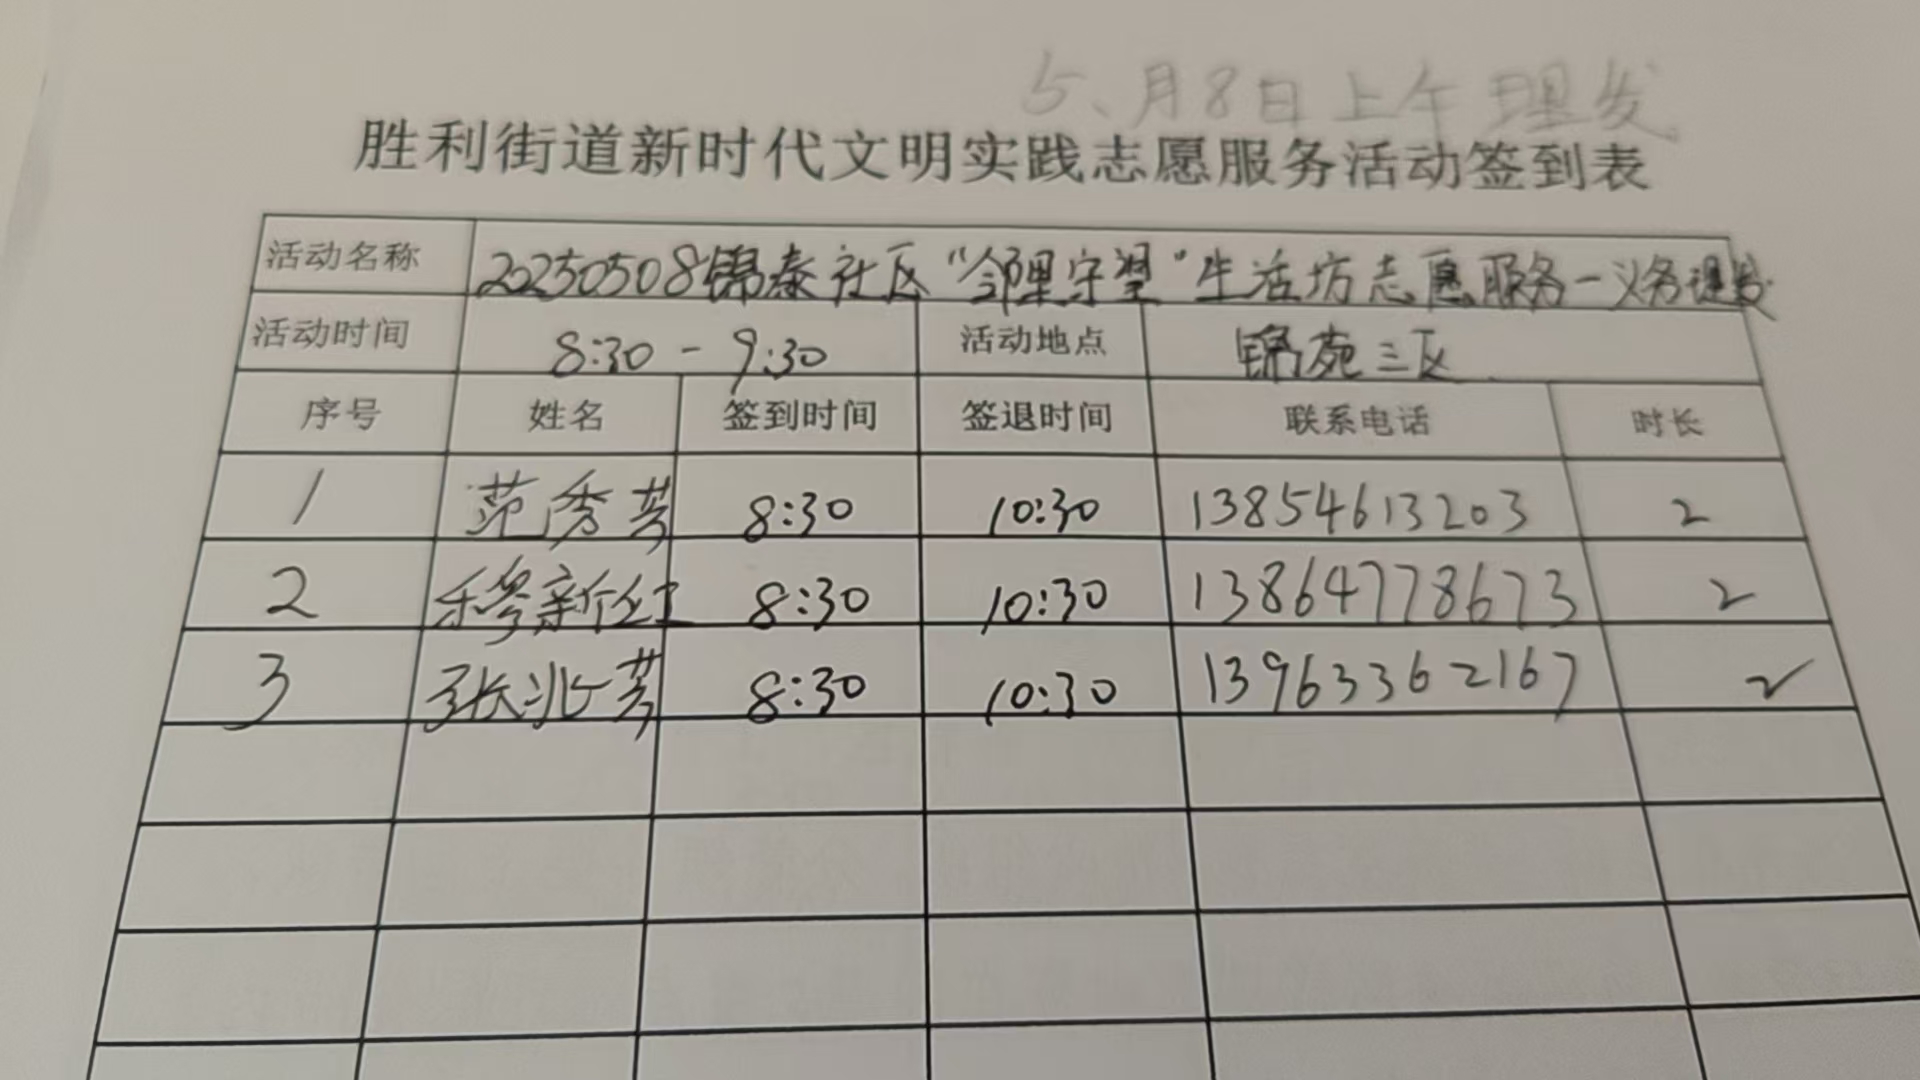 5、月8日上午理发
胜利街道新时代文明实践志愿服务活动签到表
活动名称 20250508锦泰社区“邻里守望”生活坊志愿服务-义务理发
活动时间 8:30-9:30 活动地点 锦苑三区
序号 姓名 签到时间 签退时间 联系电话 时长
1 范秀芳 8:30 10:30 13854613203 2
2 穆新红 8:30 10:30 13864778673 2
3 张兆芳 8:30 10:30 13963362167 2